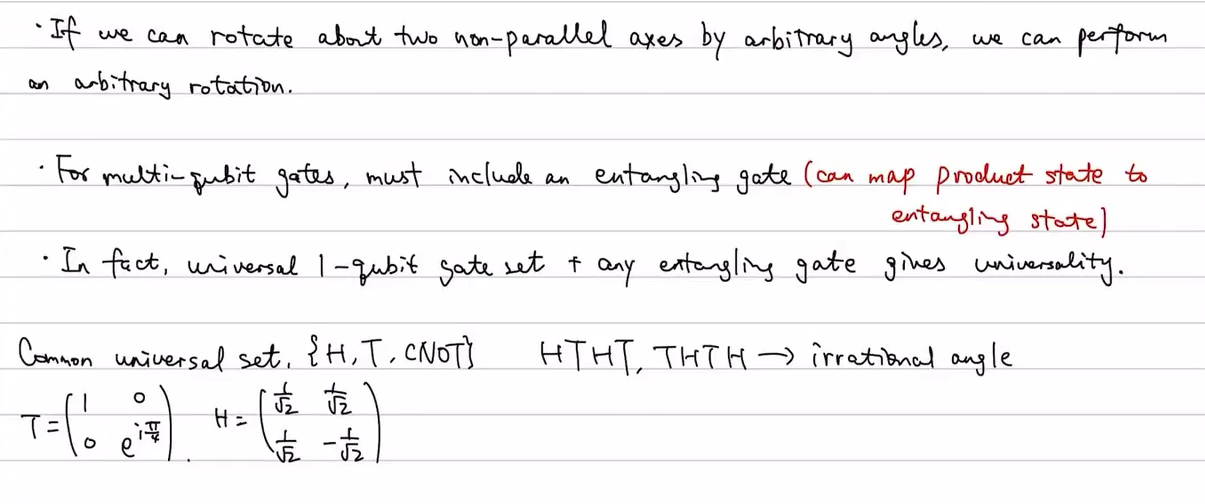 · If we can rotate about two non-parallel axes by arbitrary angles, we can perform
an arbitrary rotation.
· For multi-qubit gates, must include an entangling gate (can map product state to
entangling state)
· In fact, universal 1-qubit gate set + any entangling gate gives universality.
Common universal set. {H, T, CNOT} HTHT, THTH → irrational angle
T = (1 0; 0 e^{iπ/4}). H = (1/√2 1/√2; 1/√2 -1/√2)